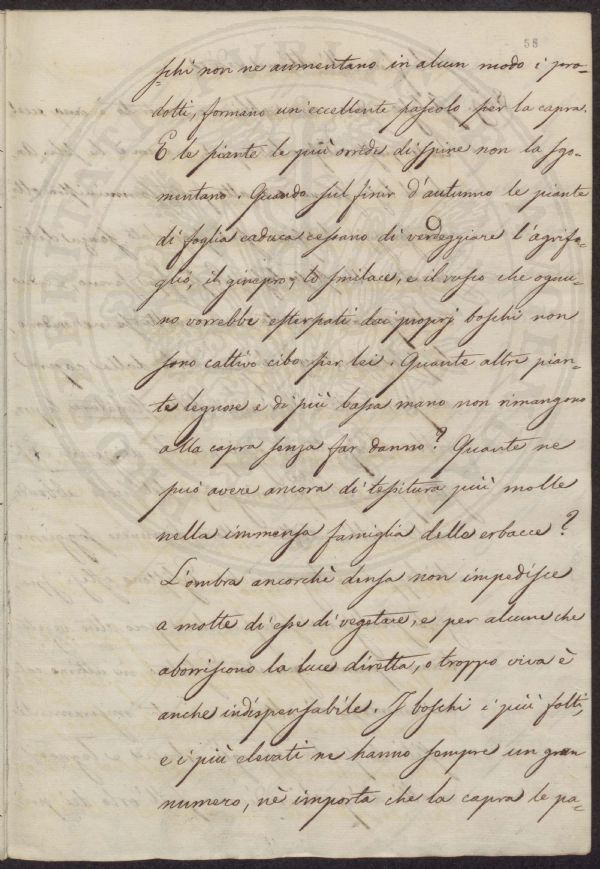 58
schi non ne aumentano in alcun modo i pro-
dotti, formano un'eccellente pascolo per la capra.
E le piante le più orride di spine non la sgo-
mentano. Quando sul finir d'autunno le piante
di foglia caduca cessano di verdeggiare l'agrifo-
glio, il ginepro, lo smilace, e il rusco che ognu-
no vorrebbe esterpati dai proprj boschi non
sono cattivo cibo per lei. Quante altre pian-
te legnose e di più bassa mano non rimangono
alla capra senza far danno? Quante ne
può avere ancora di tessitura più molle
nella immensa famiglia delle erbacce?
L'ombra ancorchè densa non impedisce
a molte di esse di vegetare, e per alcune che
aborriscono la luce diretta, o troppo viva è
anche indispensabile. I boschi i più folti,
e i più elevati ne hanno sempre un gran
numero, nè importa che la capra le pa-